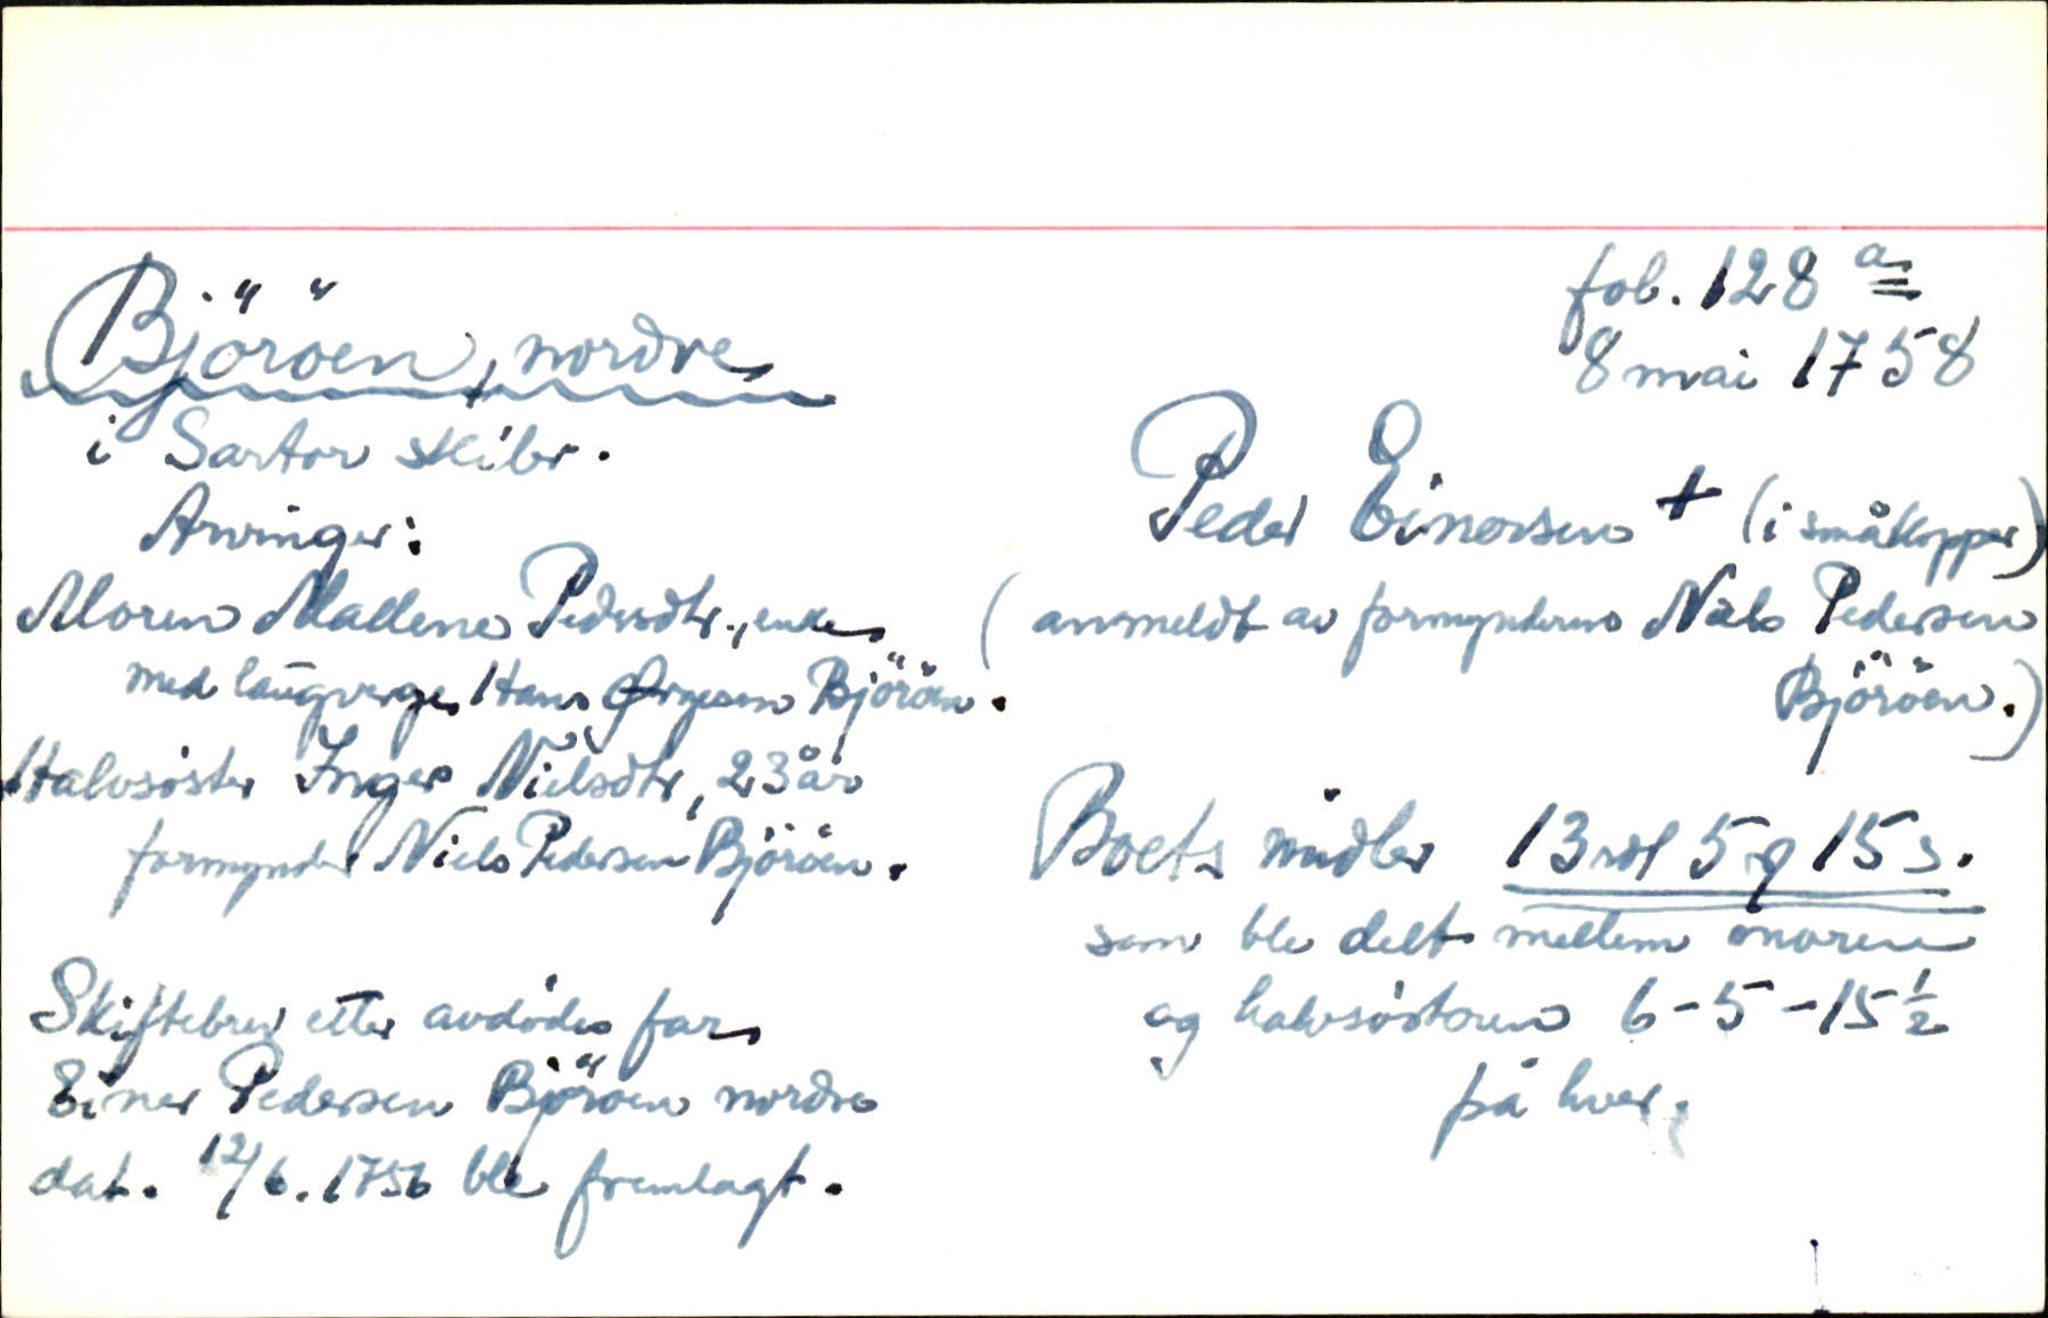 Björöen, nordre
i Sartor skibr.
Arvinger:
Moren Mallene Pedersdtr., enke
med laugverge Hans Ørgesen Björöen.
Halvsöster Inger Nielsdtr, 23 år
formynder Niels Pedersen Björöen.
Skiftebrev etter avdödes far
Einer Pedersen Björöen nordre
dat. 12/6. 1756 ble fremlagt.
fol. 128 a
8 mai 1758
Peder Einersen + (i småkopper)
(anmeldt av formynderen Niels Pedersen
Björöen.)
Boets midler 13 rdl 5 q 15 s.
som ble delt mellem moren
og halvsösteren 6 - 5 - 15 1/2
på hver.